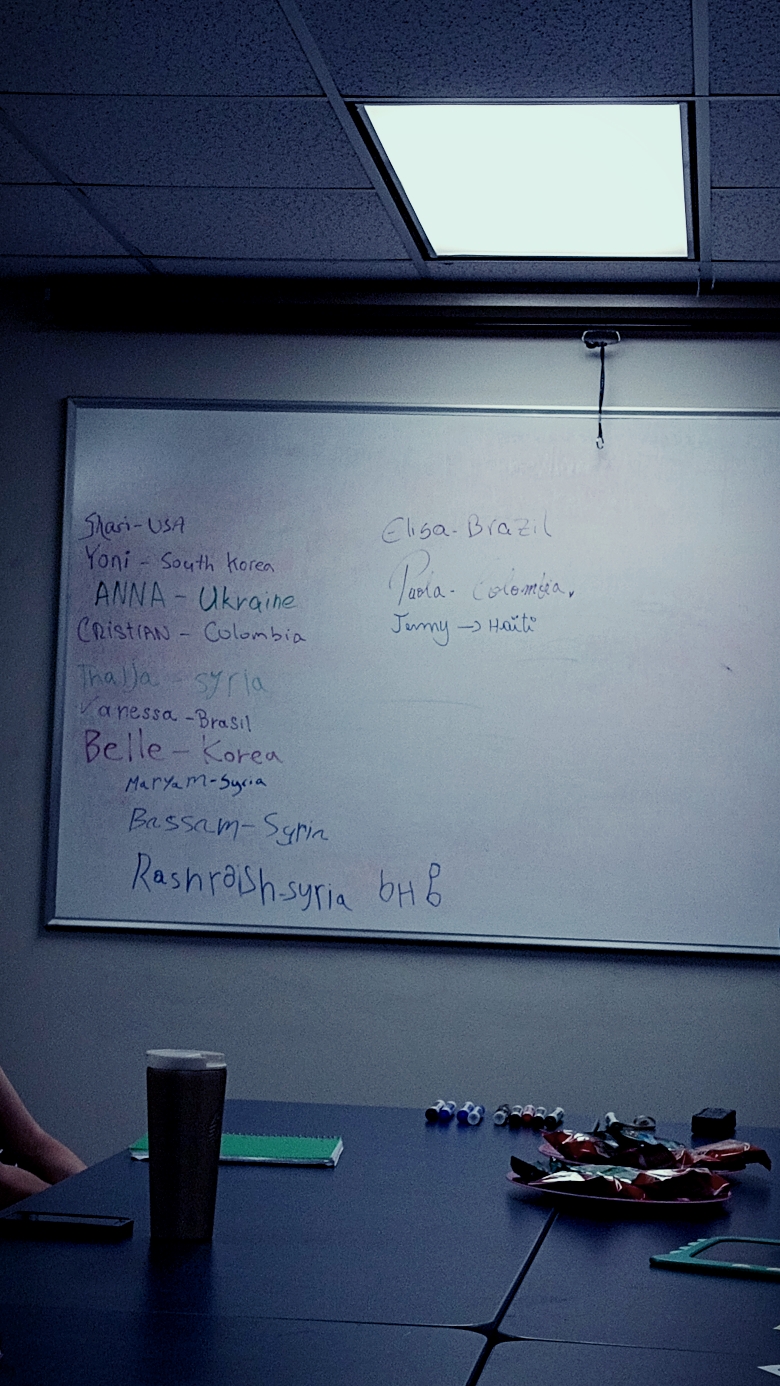 Shari-USA
Yoni - South Korea
ANNA - Ukraine
CRISTIAN - Colombia
syria
Vanessa - Brasil
Belle - Korea
Maryam-Syria
Bassam- Syria
-syria
Elisa-Brazil
Paola- Colombia.
Jenny → Haïti